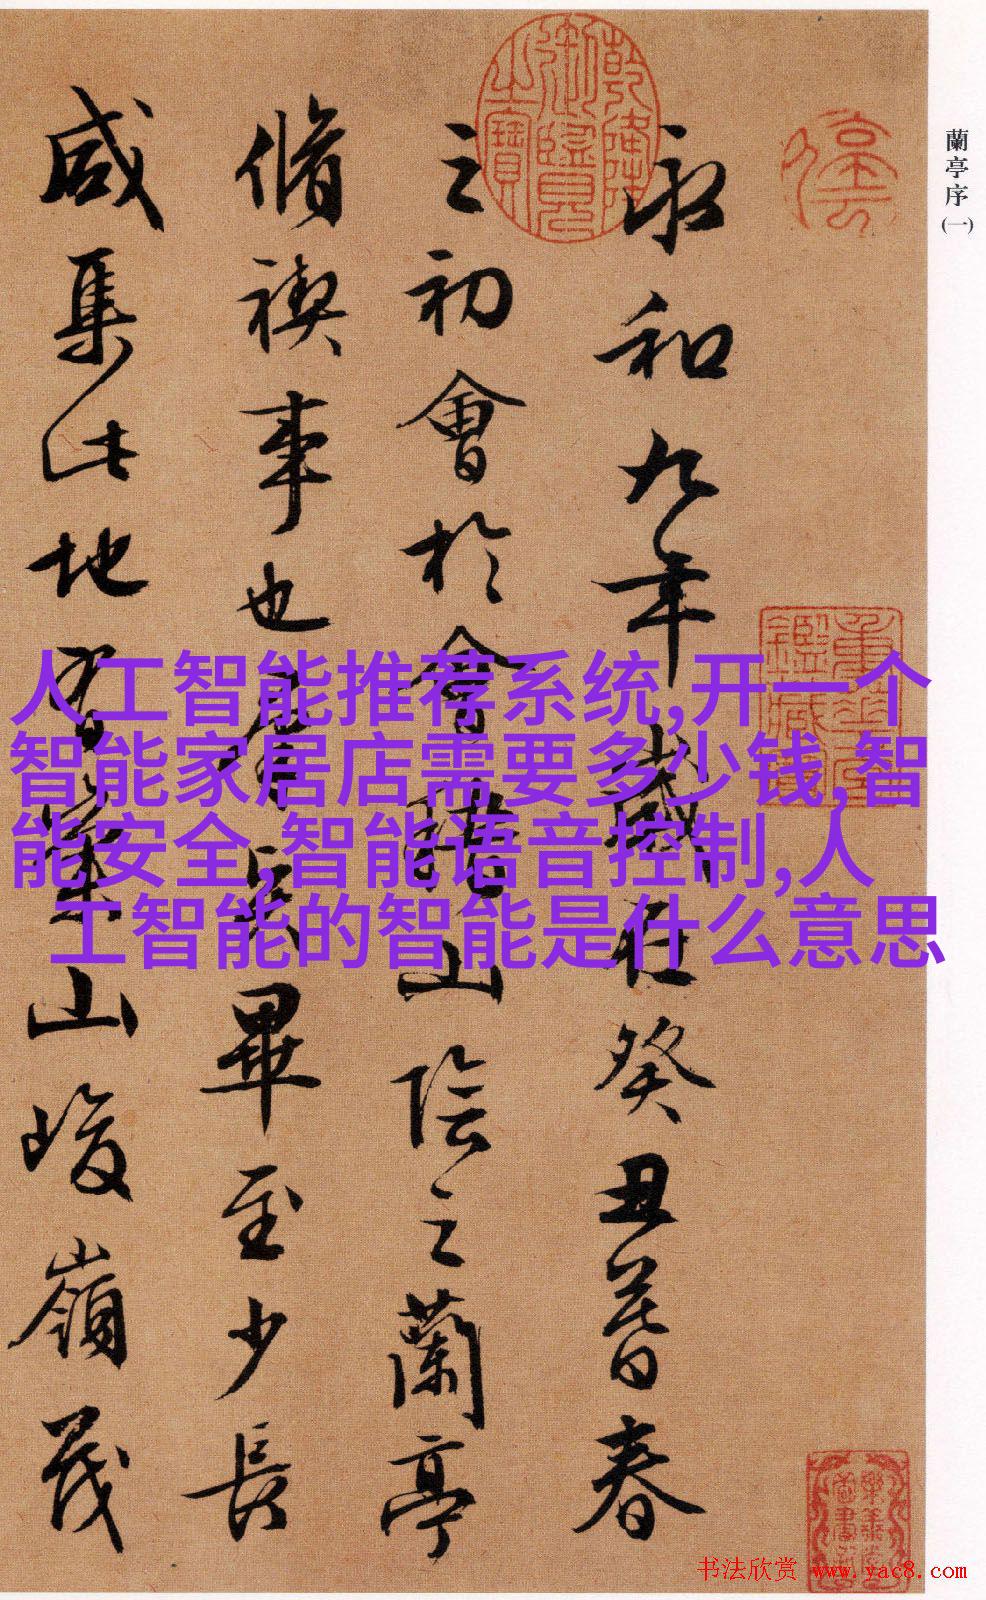 蘭亭序(一)
永和九年歲在癸丑暮春
之初會於會稽山陰之蘭亭
脩禊事也羣賢畢至少長
咸集此地有崇山峻嶺茂
乾隆御覽之寶
人工智能推荐系统,开一个
智能家居店需要多少钱,智
能安全,智能语音控制,人
工智能的智能是什么意思
书法欣赏 www.yac8.com